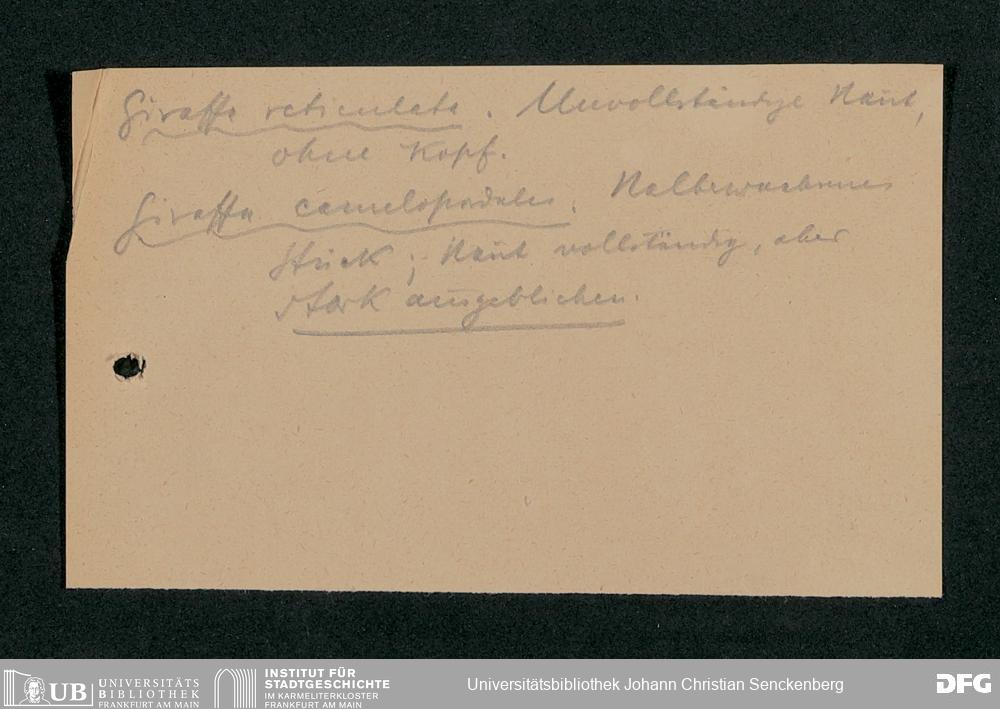 Giraffa reticulata. Unvollständige Haut,
ohne Kopf.
Giraffa camelopardalis. Halberwachsenes
Stück; Haut vollständig, aber
stark ausgeblichen.
UB UNIVERSITÄTS
BIBLIOTHEK
FRANKFURT AM MAIN
INSTITUT FÜR
STADTGESCHICHTE
IM KARMELITERKLOSTER
FRANKFURT AM MAIN
Universitätsbibliothek Johann Christian Senckenberg
DFG